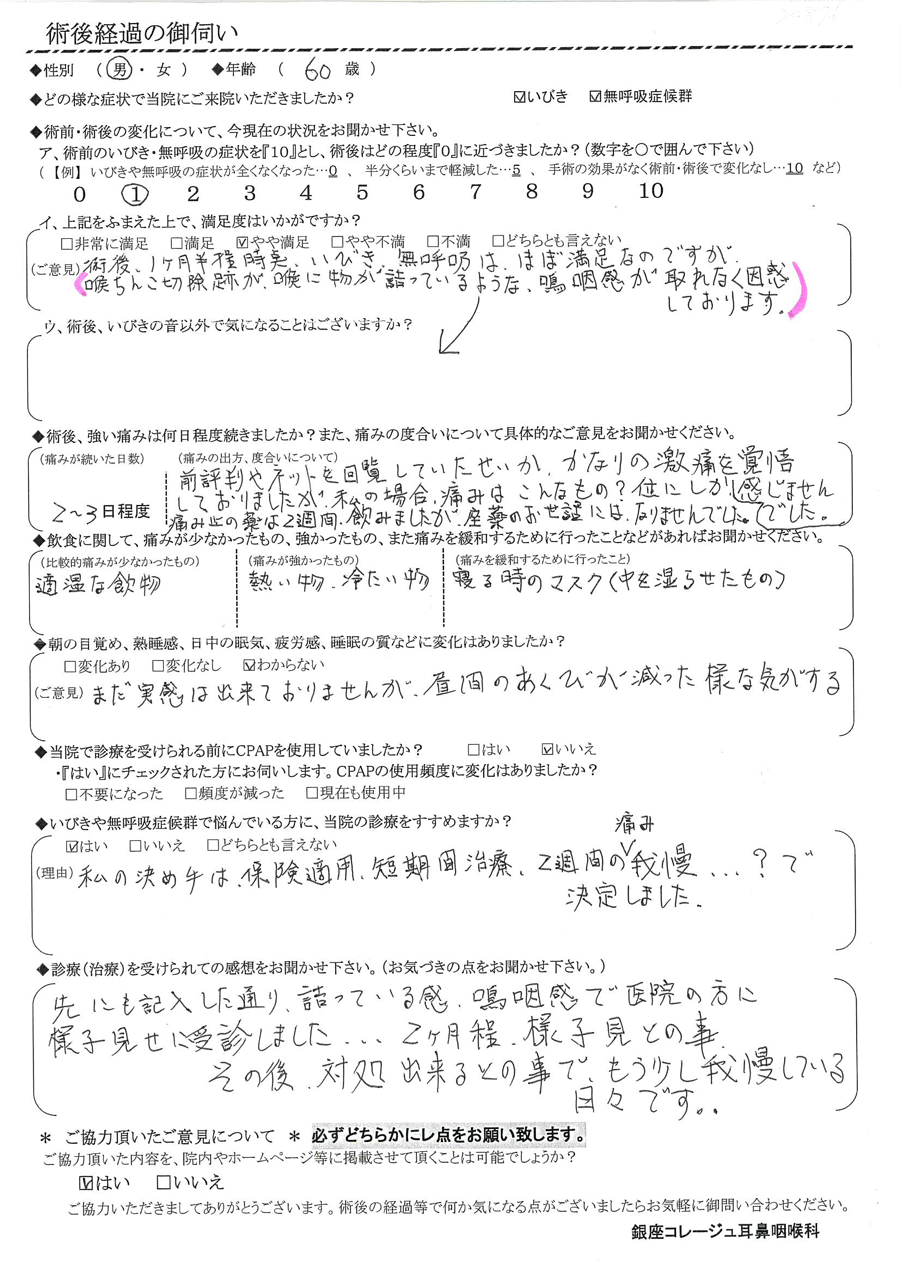 術後経過の御伺い
◆性別 （ 男 ・ 女 ） ◆年齢 （ 60 歳 ）
◆どの様な症状で当院にご来院いただきましたか？ ☑いびき ☑無呼吸症候群
◆術前・術後の変化について、今現在の状況をお聞かせ下さい。
ア、術前のいびき・無呼吸の症状を『10』とし、術後はどの程度『0』に近づきましたか？（数字を○で囲んで下さい）
（【例】 いびきや無呼吸の症状が全くなくなった…0 、 半分くらいまで軽減した…5 、 手術の効果がなく術前・術後で変化なし…10 など）
0 ① 2 3 4 5 6 7 8 9 10
イ、上記をふまえた上で、満足度はいかがですか？
□非常に満足 □満足 ☑やや満足 □やや不満 □不満 □どちらとも言えない
(ご意見) 術後、1ヶ月半程時実、いびき、無呼吸は、ほぼ満足なのですが、
喉ちんこ切除跡が、喉に物が詰っているような、嗚咽感が取れなく困惑
しております。
ウ、術後、いびきの音以外で気になることはございますか？
◆術後、強い痛みは何日程度続きましたか？また、痛みの度合いについて具体的なご意見をお聞かせください。
(痛みが続いた日数) (痛みの出方、度合いについて)
前評判やネットを回覧していたせいか、かなりの激痛を覚悟
しておりましたが、私の場合、痛みは こんなもの？位にしか感じません
でした。
2～3日程度 痛み止の薬は2週間、飲みましたが、座薬のお世話には、なりませんでした。
◆飲食に関して、痛みが少なかったもの、強かったもの、また痛みを緩和するために行ったことなどがあればお聞かせください。
(比較的痛みが少なかったもの) (痛みが強かったもの) (痛みを緩和するために行ったこと)
適温な飲物 熱い物、冷たい物 寝る時のマスク（中を湿らせたもの）
◆朝の目覚め、熟睡感、日中の眠気、疲労感、睡眠の質などに変化はありましたか？
□変化あり □変化なし ☑わからない
(ご意見) まだ実感は出来ておりませんが、昼間のあくびが減った様な気がする
◆当院で診療を受けられる前にCPAPを使用していましたか？ □はい ☑いいえ
・『はい』にチェックされた方にお伺いします。CPAPの使用頻度に変化はありましたか？
□不要になった □頻度が減った □現在も使用中
◆いびきや無呼吸症候群で悩んでいる方に、当院の診療をすすめますか？
☑はい □いいえ □どちらとも言えない
(理由) 私の決め手は、保険適用、短期間治療、2週間の痛み我慢...？で
決定しました。
◆診療（治療）を受けられての感想をお聞かせ下さい。（お気づきの点をお聞かせ下さい。）
先にも記入した通り、詰っている感、嗚咽感で医院の方に
様子見せに受診しました... 2ヶ月程、様子見との事、
その後、対処出来るとの事で、もう少し我慢している
日々です..
＊ ご協力頂いたご意見について ＊ 必ずどちらかにレ点をお願い致します。
ご協力頂いた内容を、院内やホームページ等に掲載させて頂くことは可能でしょうか？
☑はい □いいえ
ご協力いただきましてありがとうございます。術後の経過等で何か気になる点がございましたらお気軽に御問い合わせください。
銀座コレージュ耳鼻咽喉科